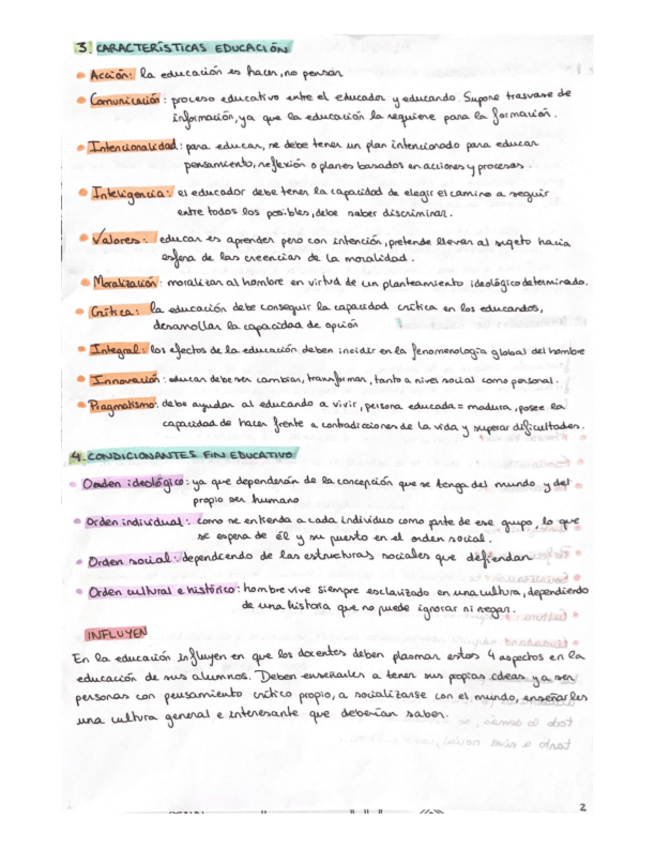 3. CARACTERÍSTICAS EDUCACIÓN
• Acción: la educación es hacer, no pensar
• Comunicación: proceso educativo entre el educador y educando. Supone trasvase de
información, ya que la educación la requiere para la formación.
• Intencionalidad: para educar, se debe tener un plan intencionado para educar
pensamiento, reflexión o planes basados en acciones y procesos.
• Inteligencia: el educador debe tener la capacidad de elegir el camino a seguir
entre todos los posibles, debe saber discriminar.
• Valores: educar es aprender pero con intención, pretende llevar al sujeto hacia
esfera de las creencias de la moralidad.
• Moralización: moralizar al hombre en virtud de un planteamiento ideológico determinado.
• Crítica: la educación debe conseguir la capacidad crítica en los educandos,
desarrollar la capacidad de opción
• Integral: los efectos de la educación deben incidir en la fenomenología global del hombre
• Innovación: educar debe ser cambiar, transformar, tanto a nivel social como personal.
• Pragmatismo: debe ayudar al educando a vivir, persona educada = madura, posee la
capacidad de hacer frente a contradicciones de la vida y superar dificultades.
4. CONDICIONANTES FIN EDUCATIVO
• Orden ideológico: ya que dependerán de la concepción que se tenga del mundo y del
propio ser humano
• Orden individual: como se entienda a cada individuo como parte de ese grupo, lo que
se espera de él y su puesto en el orden social.
• Orden social: dependcendo de las estructuras sociales que defiendan
• Orden cultural e histórico: hombre vive siempre esclavizado en una cultura, dependiendo
de una historia que no puede ignorar ni negar.
INFLUYEN
En la educación influyen en que los docentes deben plasmar estos 4 aspectos en la
educación de sus alumnos. Deben enseñarles a tener sus propias ideas y a ser
personas con pensamiento crítico propio, a socializarse con el mundo, enseñarles
una cultura general e interesante que deberían saber.
2